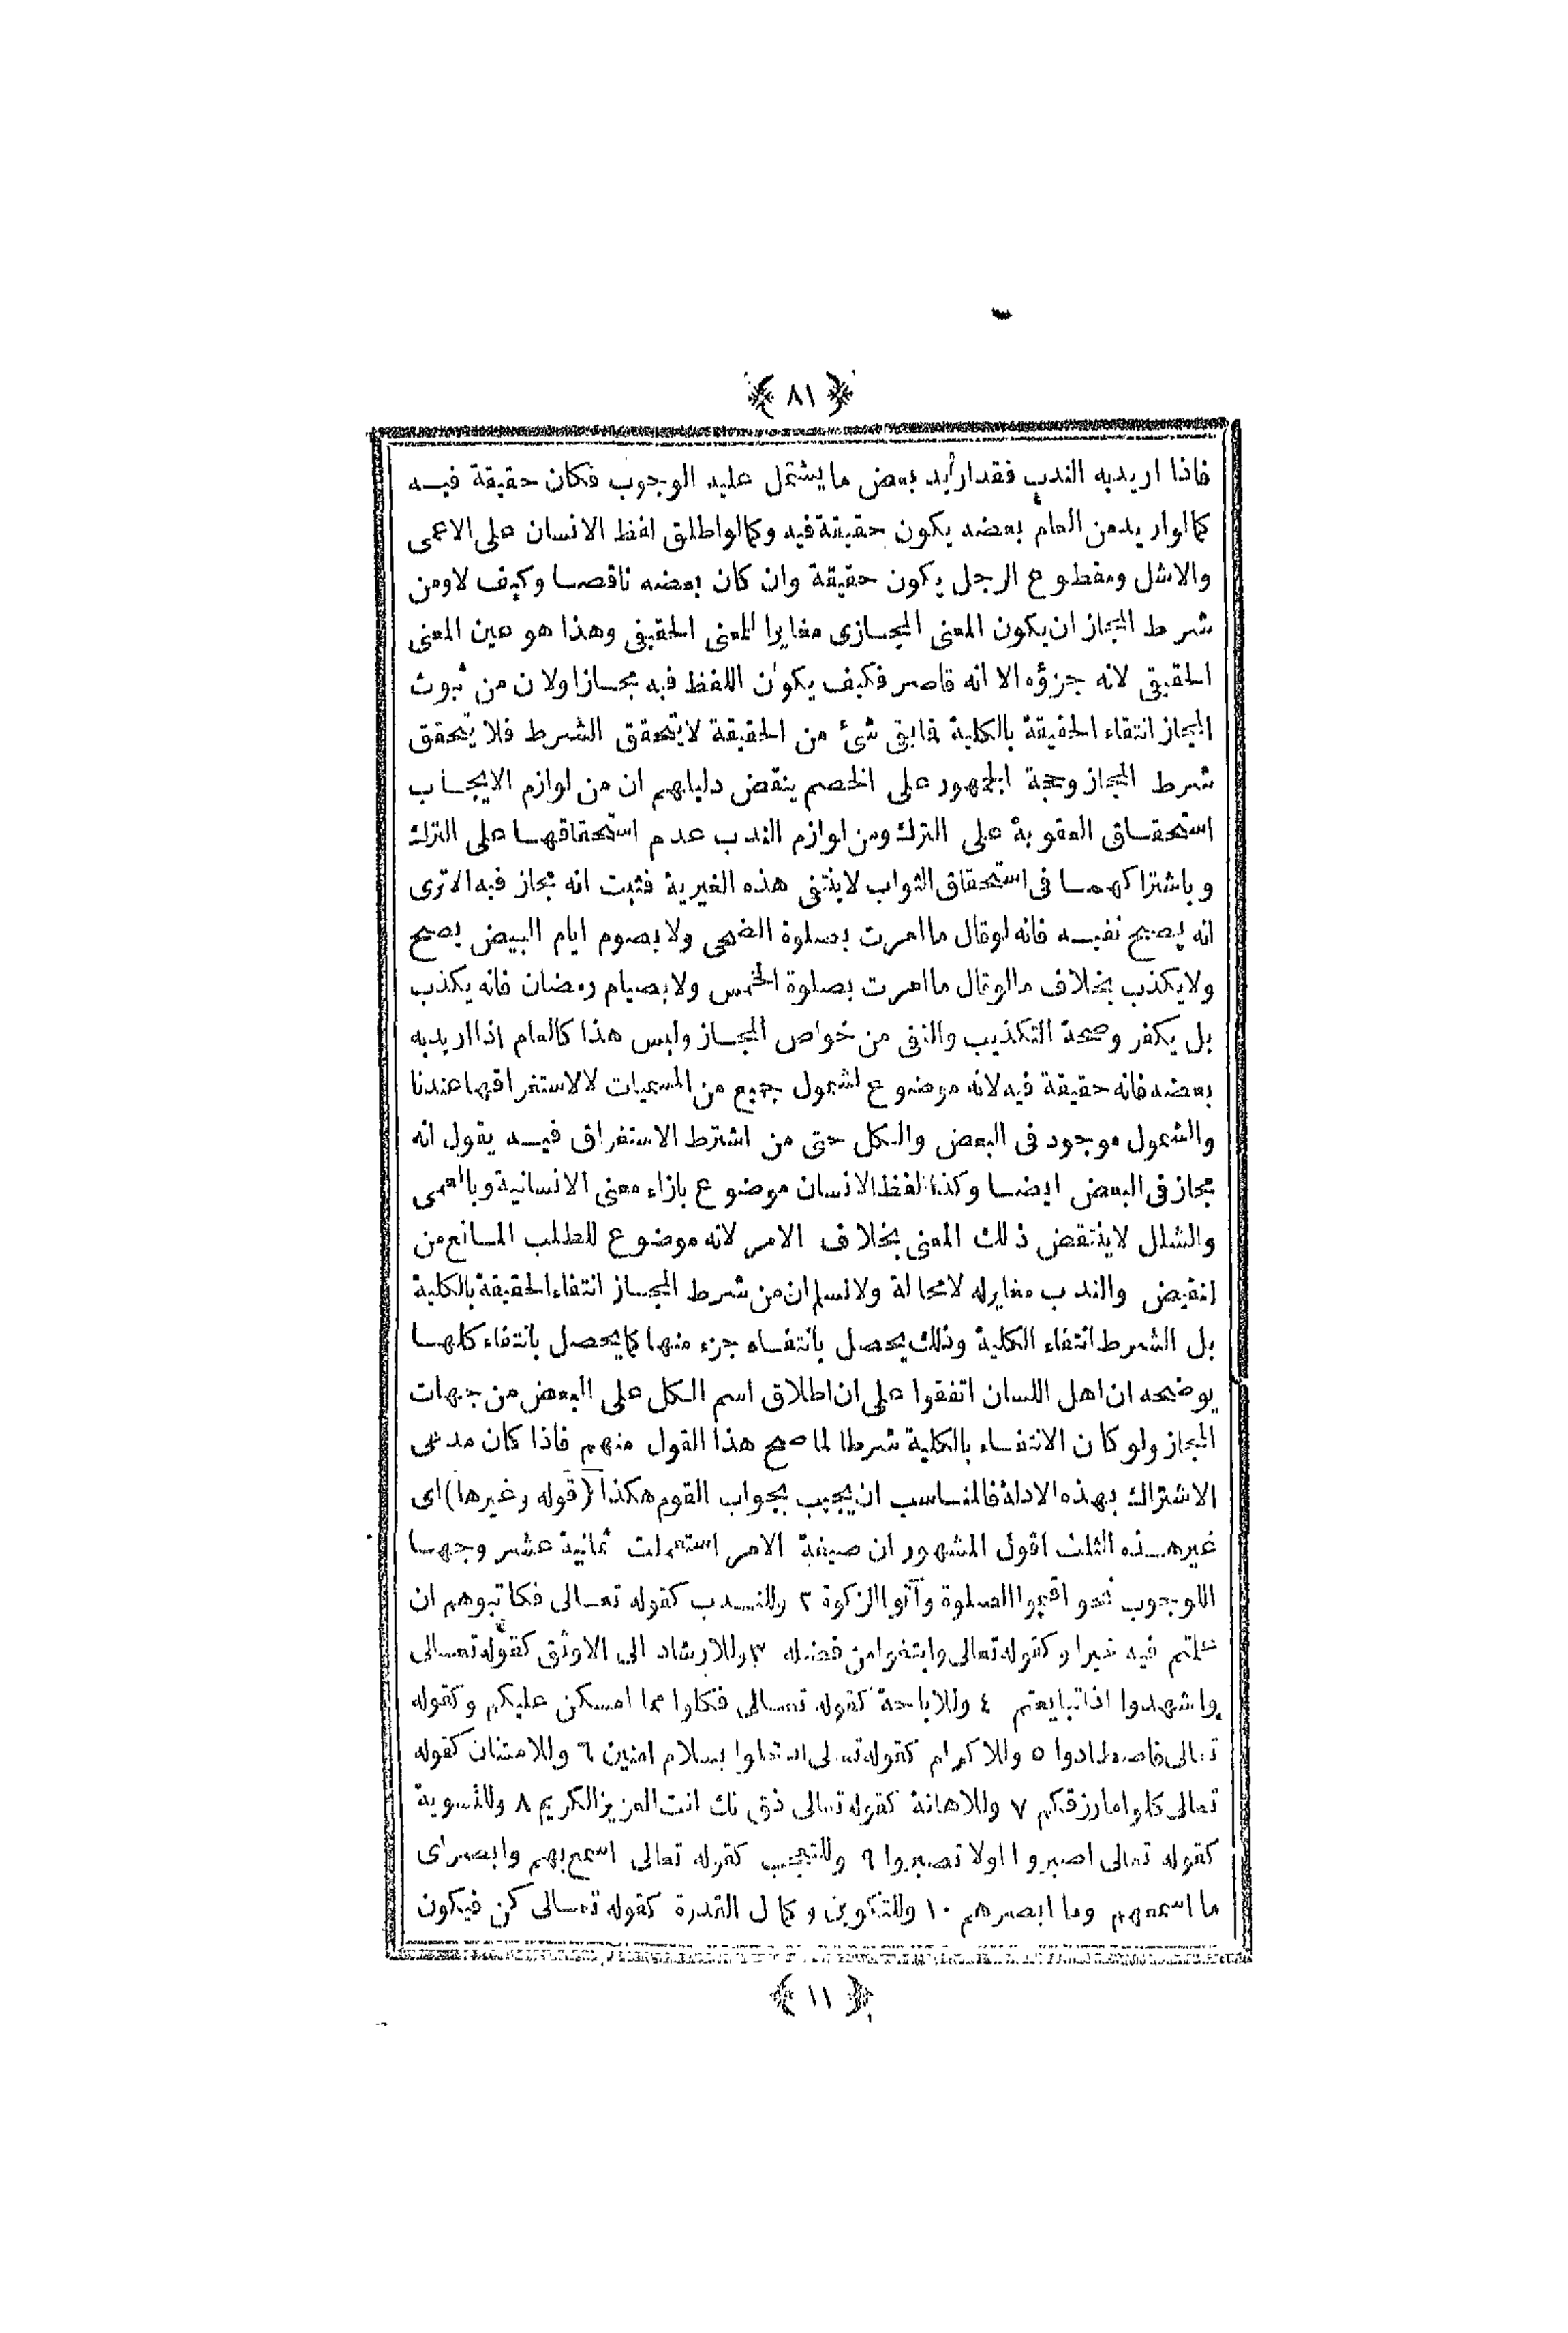 ﴿ ٨١ ﴾
فاذا اريد به الندب فقد اريد بعض ما يشتمل عليه الوجوب فكان حقيقة فيه
كما لو اريد من العام بعضه يكون حقيقة فيه وكما لو اطلق لفظ الانسان على الاعمى
والاشل ومقطوع الرجل يكون حقيقة وان كان بعضه ناقصا وكيف لا ومن
شرط المجاز ان يكون المعنى المجازى مغايرا للمعنى الحقيقى وهذا هو عين المعنى
الحقيقى لانه جزؤه الا انه قاصر فكيف يكون اللفظ فيه مجازا ولان من ثبوت
المجاز انتفاء الحقيقة بالكلية فما بقى شئ من الحقيقة لا يتحقق الشرط فلا يتحقق
شرط المجاز وحجة الجمهور على الخصم ينقض دليلهم ان من لوازم الايجاب
استحقاق العقوبة على الترك ومن لوازم الندب عدم استحقاقها على الترك
وباشتراكهما فى استحقاق الثواب لا ينتفى هذه الغيرية فثبت انه مجاز فيه الا ترى
انه يصح نفيه فانه لو قال ما امرت بصلوة الضحى ولا بصوم ايام البيض يصح
ولا يكذب بخلاف ما لو قال ما امرت بصلوة الخمس ولا بصيام رمضان فانه يكذب
بل يكفر وصحة التكذيب والنفى من خواص المجاز وليس هذا كالعام اذا اريد به
بعضه فانه حقيقة فيه لانه موضوع لشمول جميع من المسميات لا لاستغراقها عندنا
والشمول موجود فى البعض والكل حتى من اشترط الاستغراق فيه يقول انه
مجاز فى البعض ايضا وكذا لفظ الانسان موضوع بازاء معنى الانسانية وبالعمى
والشلل لا ينتقض ذلك المعنى بخلاف الامر لانه موضوع للطلب المانع من
النقيض والندب مغاير له لا محالة ولا نسلم ان من شرط المجاز انتفاء الحقيقة بالكلية
بل الشرط انتفاء الكلية وذلك يحصل بانتفاء جزء منها كما يحصل بانتفاء كلها
يوضحه ان اهل اللسان اتفقوا على ان اطلاق اسم الكل على البعض من جهات
المجاز ولو كان الانتفاء بالكلية شرطا لما صح هذا القول منهم فاذا كان مدعى
الاشتراك بهذه الادلة فالمناسب ان يجيب بجواب القوم هكذا (قوله وغيرها) اى
غير هذه الثلث اقول المشهور ان صيغة الامر استعملت ثمانية عشر وجها
اللوجوب نحو اقيموا الصلوة وآتوا الزكوة ٢ وللندب كقوله تعالى فكاتبوهم ان
علمتم فيه خيرا وكقوله تعالى وابتغوا من فضله ٣ وللارشاد الى الاوثق كقوله تعالى
واشهدوا اذا تبايعتم ٤ وللاباحة كقوله تعالى فكلوا مما امسكن عليكم وكقوله
تعالى فاصطادوا ٥ وللاكرام كقوله تعالى ادخلوا بسلام امنين ٦ وللامتنان كقوله
تعالى كلوا مما رزقكم ٧ وللاهانة كقوله تعالى ذق انك انت العزيز الكريم ٨ وللتسوية
كقوله تعالى اصبروا اولا تصبروا ٩ وللتعجب كقوله تعالى اسمع بهم وابصر اى
ما اسمعهم وما ابصرهم ١٠ وللتكوين وكمال القدرة كقوله تعالى كن فيكون
﴿ ١١ ﴾